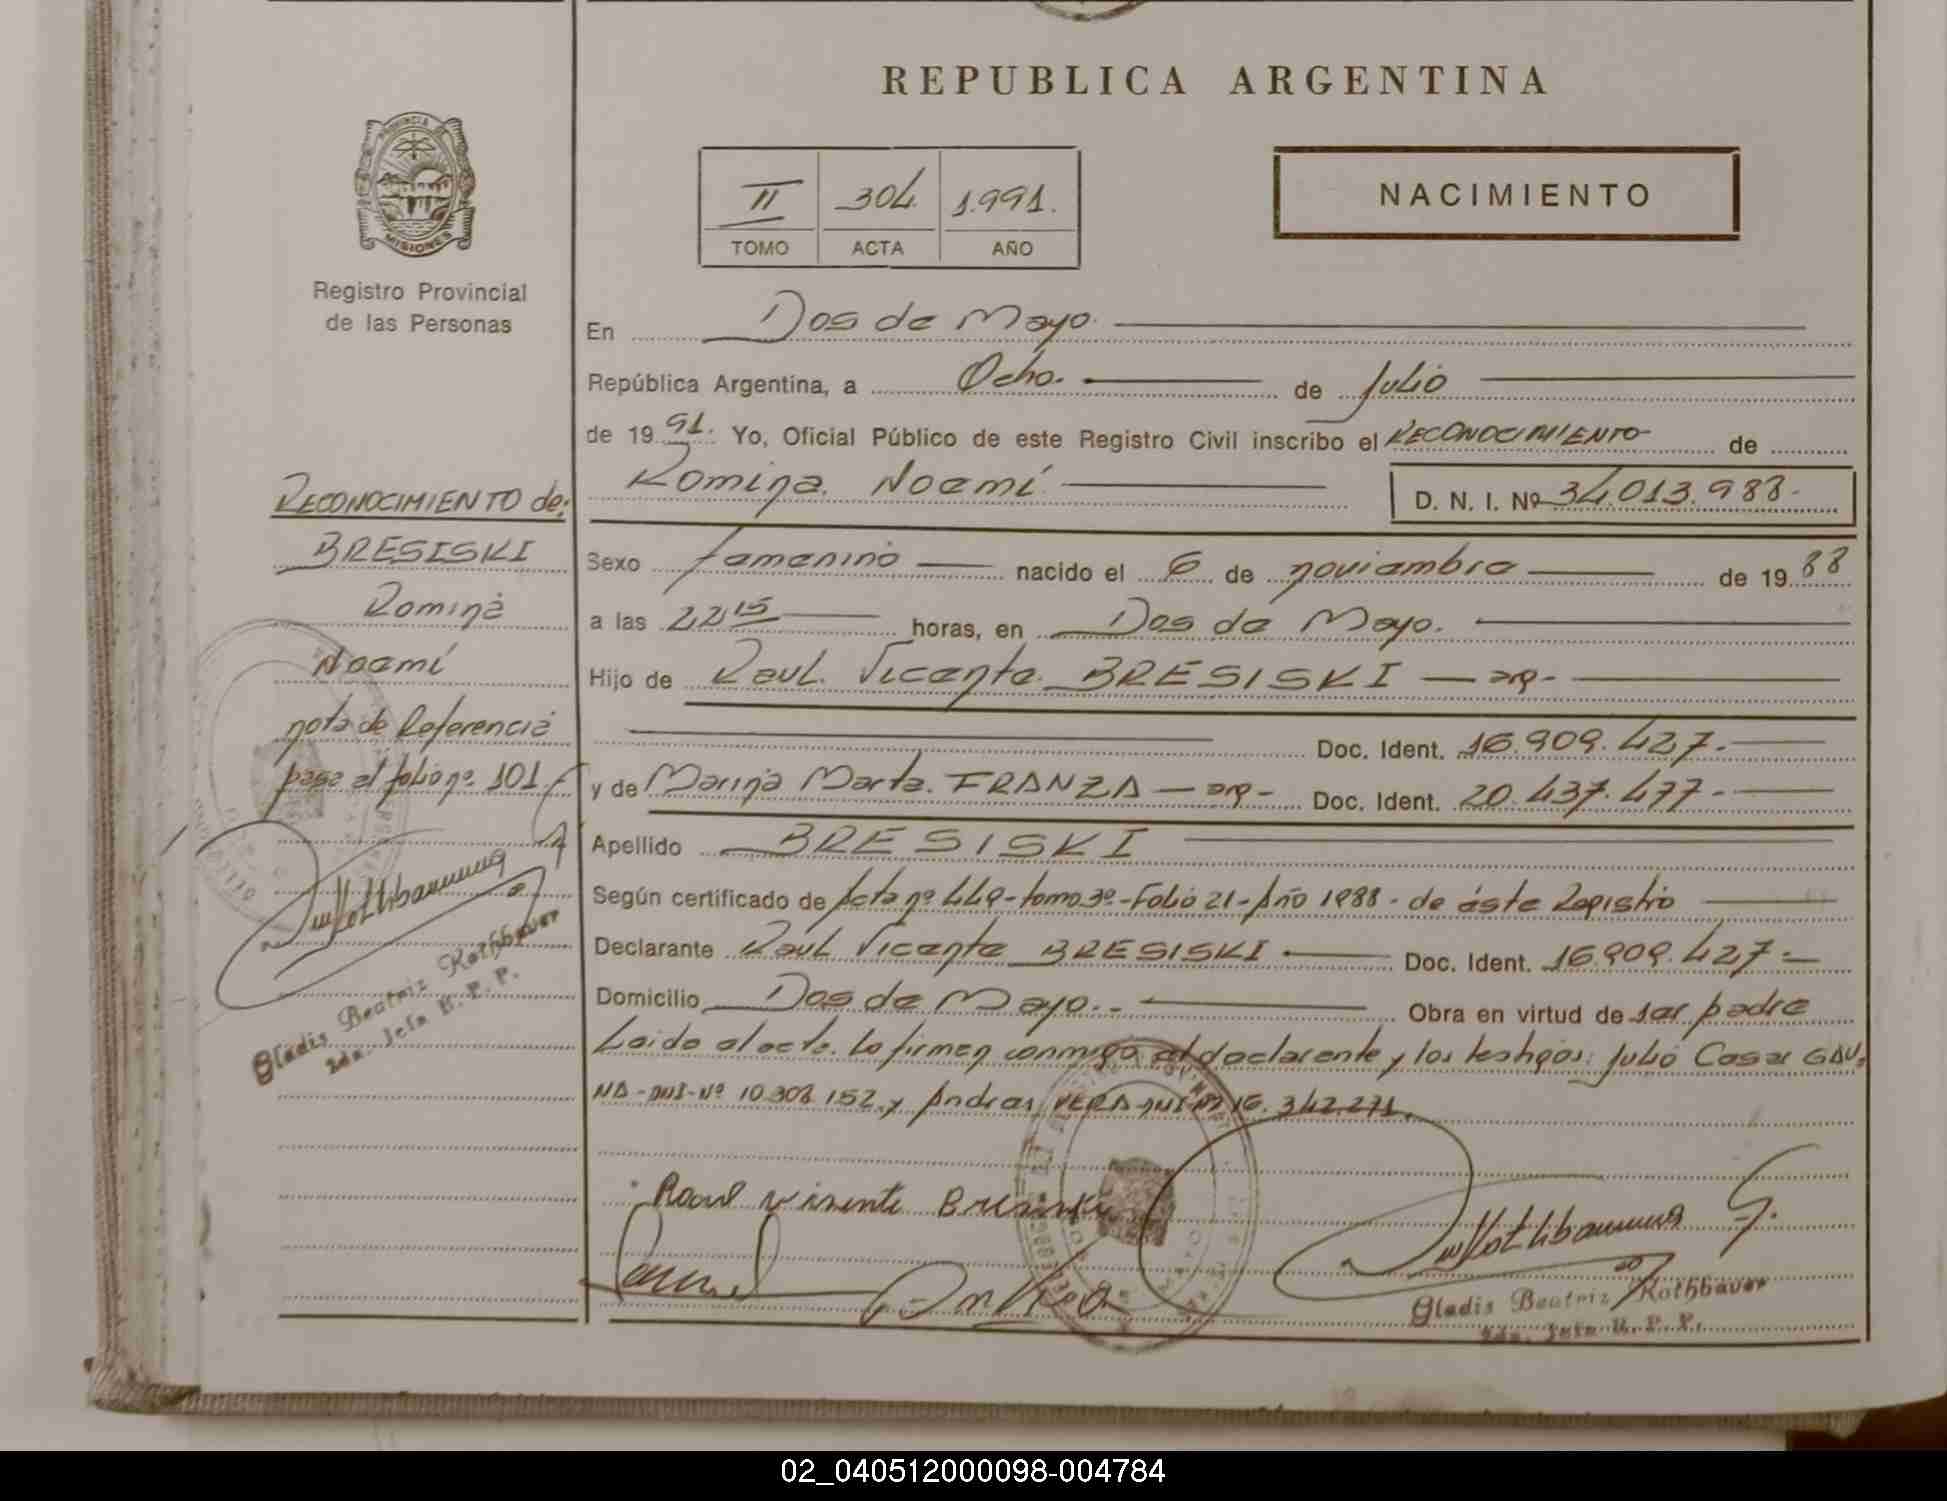 REPUBLICA ARGENTINA
PROVINCIA DE
MISIONES
Registro Provincial
de las Personas
II 304. 1.991.
TOMO ACTA AÑO
NACIMIENTO
En Dos de Mayo.
República Argentina, a Ocho. de Julio
de 19 91. Yo, Oficial Público de este Registro Civil inscribo el RECONOCIMIENTO de
Romina Noemí D. N. I. Nº 34.013.988.-
Sexo femenino nacido el 6 de noviembre de 19 88
a las 22 15 horas, en Dos de Mayo.
Hijo de Raul Vicente BRESISKI - arg -
Doc. Ident. 16.909.427.-
y de Marina Marta FRANZA - arg - Doc. Ident. 20.437.477.-
Apellido BRESISKI
Según certificado de Acta nº 449 - tomo 3º - Folio 21 - Año 1988 - de éste Registro
Declarante Raul Vicente BRESISKI Doc. Ident. 16.909.427.-
Domicilio Dos de Mayo. Obra en virtud de ser padre
Leida el acta. lo firman conmigo el declarante y los testigos: Julio Cesar GAU.
NA - DNI - Nº 10.308.152 y Andres VERA DNI Nº 16.342.271.
Raul Visente Bresiski
Gladis Beatriz Rothbauer
2da. Jefa R. P. P.
RECONOCIMIENTO de:
BRESISKI
Romina
Noemí
nota de Referencia
pasa al folio nº 101
Gladis Beatriz Rothbauer
2da. Jefa R. P. P.
02_040512000098-004784